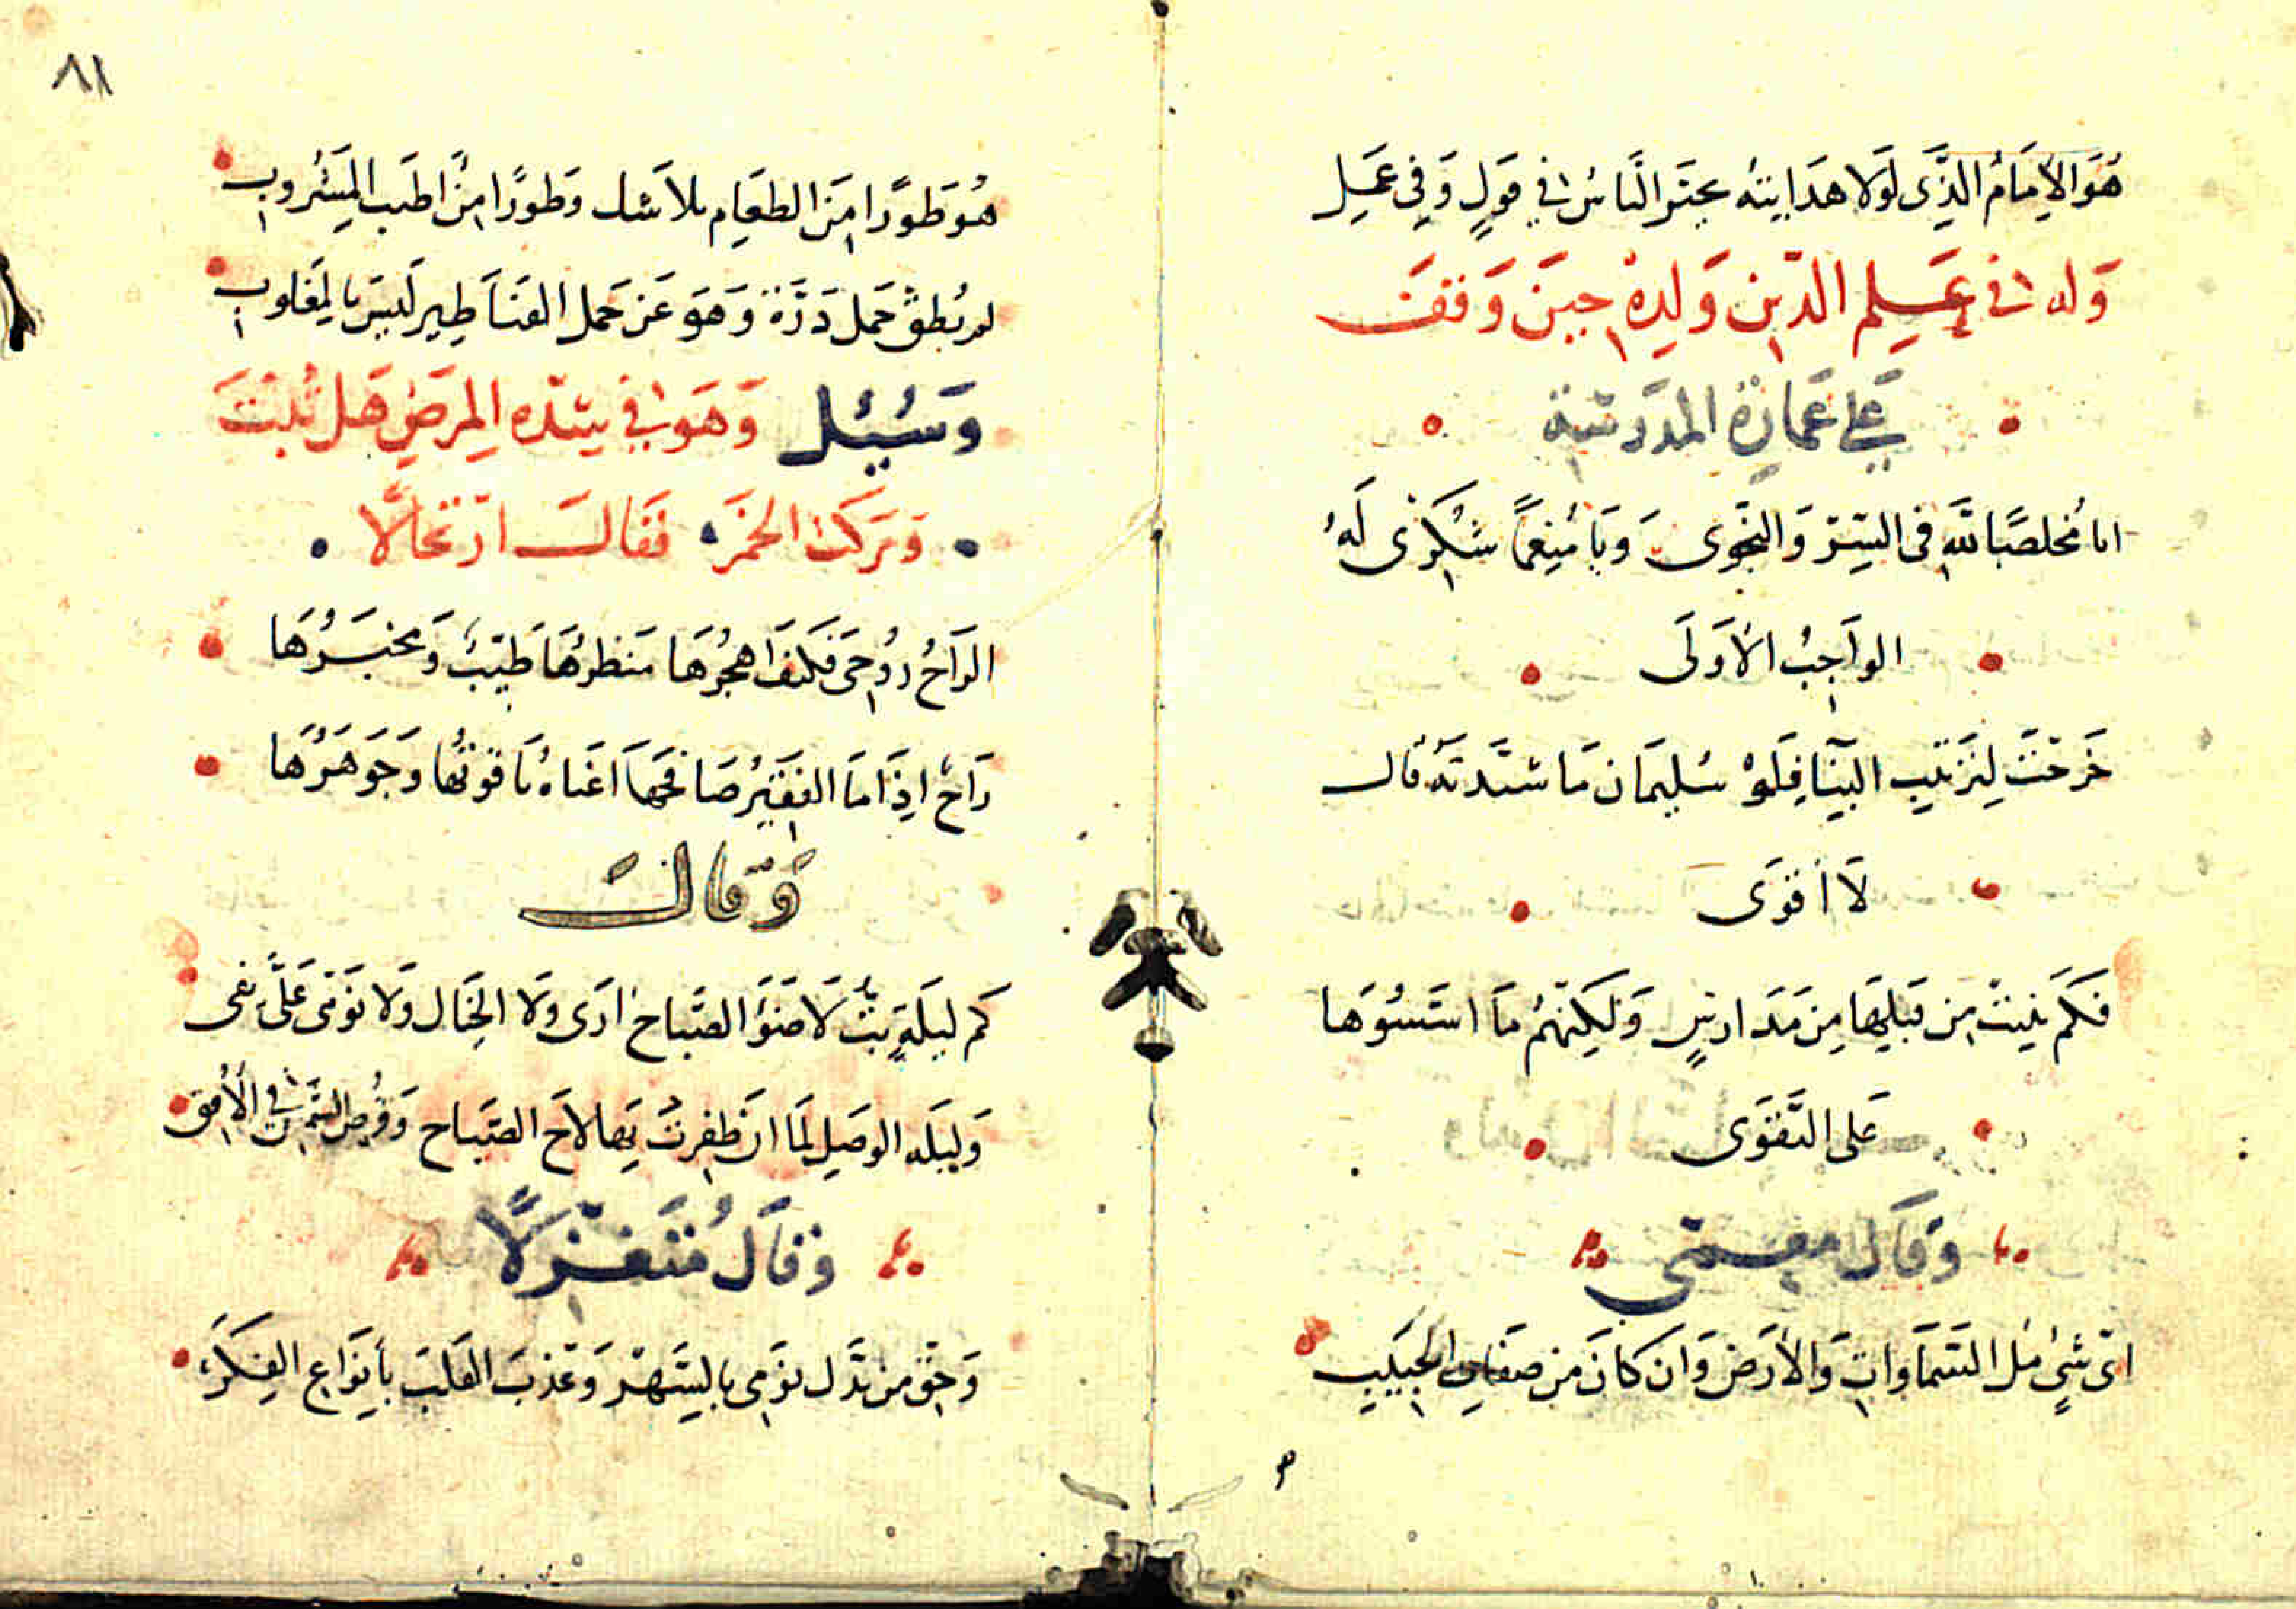 هُوَ الاِمَامُ الذَّى لَوَلا هَدَايتهُ تحيَّر النَّاسُ فى قَولٍ وَفِى عَمَلِ
وَله فى عَلم الدّين وَلده حينَ وَقفَ
عَلى عَمارة المدرسَة
ايا مُخلصًا للهِ فى السِّرّ وَالنجَّوى وَيَا مُنعِمًا شُكرْى لَهُ
الوَاجِبُ الأَوَلَى
خَرجْتَ لِترَتيبِ البِنَا فَلَوْ سُليمَان مَا شَيَّدتَهُ قال
لَا أقوَى
فَكَم بُنيتْ مِن قَبلِهَا مِن مَدَارسٍ وَلَكِنّهُم مَا اسَّسُوَهَا
عَلى التَّقوَى
وَقَال معمى
اىّ شَىٍ مِل السَّمَاواتِ وَالأَرَضِ وَان كَانَ مِن صفَاتِ الحبَيبِ
٨١
هُوَ طَورًا مِنَ الطعَامِ بلا شك وَطورًا مِنْ اطيَب المَشروبِ
لم يُطقْ حَمل ذَرَّة وَهَوَ عَن حَمل القنَاطِير لَيسَ بالمَغلوبِ
وَسُئِل وَهَو فى شدّه المرَضِ هَل تُبْتَ
وَتركتَ الخمَرَ فقَال ارتجَالًا
الرَاحُ رُوحى فَكيفَ اهجُرُهَا مَنظرُهَا طَيّبٌ وَمخبَرُهَا
رَاحٌ اذِا مَا الفَقيرُ صَافحَهَا اغنَاهُ يَاقوتُها وَجَوهَرُهَا
وَقال
كَم لَيلَةٍ بتُّ لَا ضَوَءَ الصَّباح ارَى وَلَا الخَيال وَلا نوَمى عَلَىَّ يفى
وَليلَه الوصَلِ لَمّا انَ ظفِرتُ بِهَا لاحَ الصّباح وَقُرص الشَّمس فى الأُفق
وَقَال مُتَغَزلًا
وَحَقّ مَن بدَّل نوَمِى بالسَّهَر وَعَذبَ القلبَ بأنوَاعِ الفِكَرَ